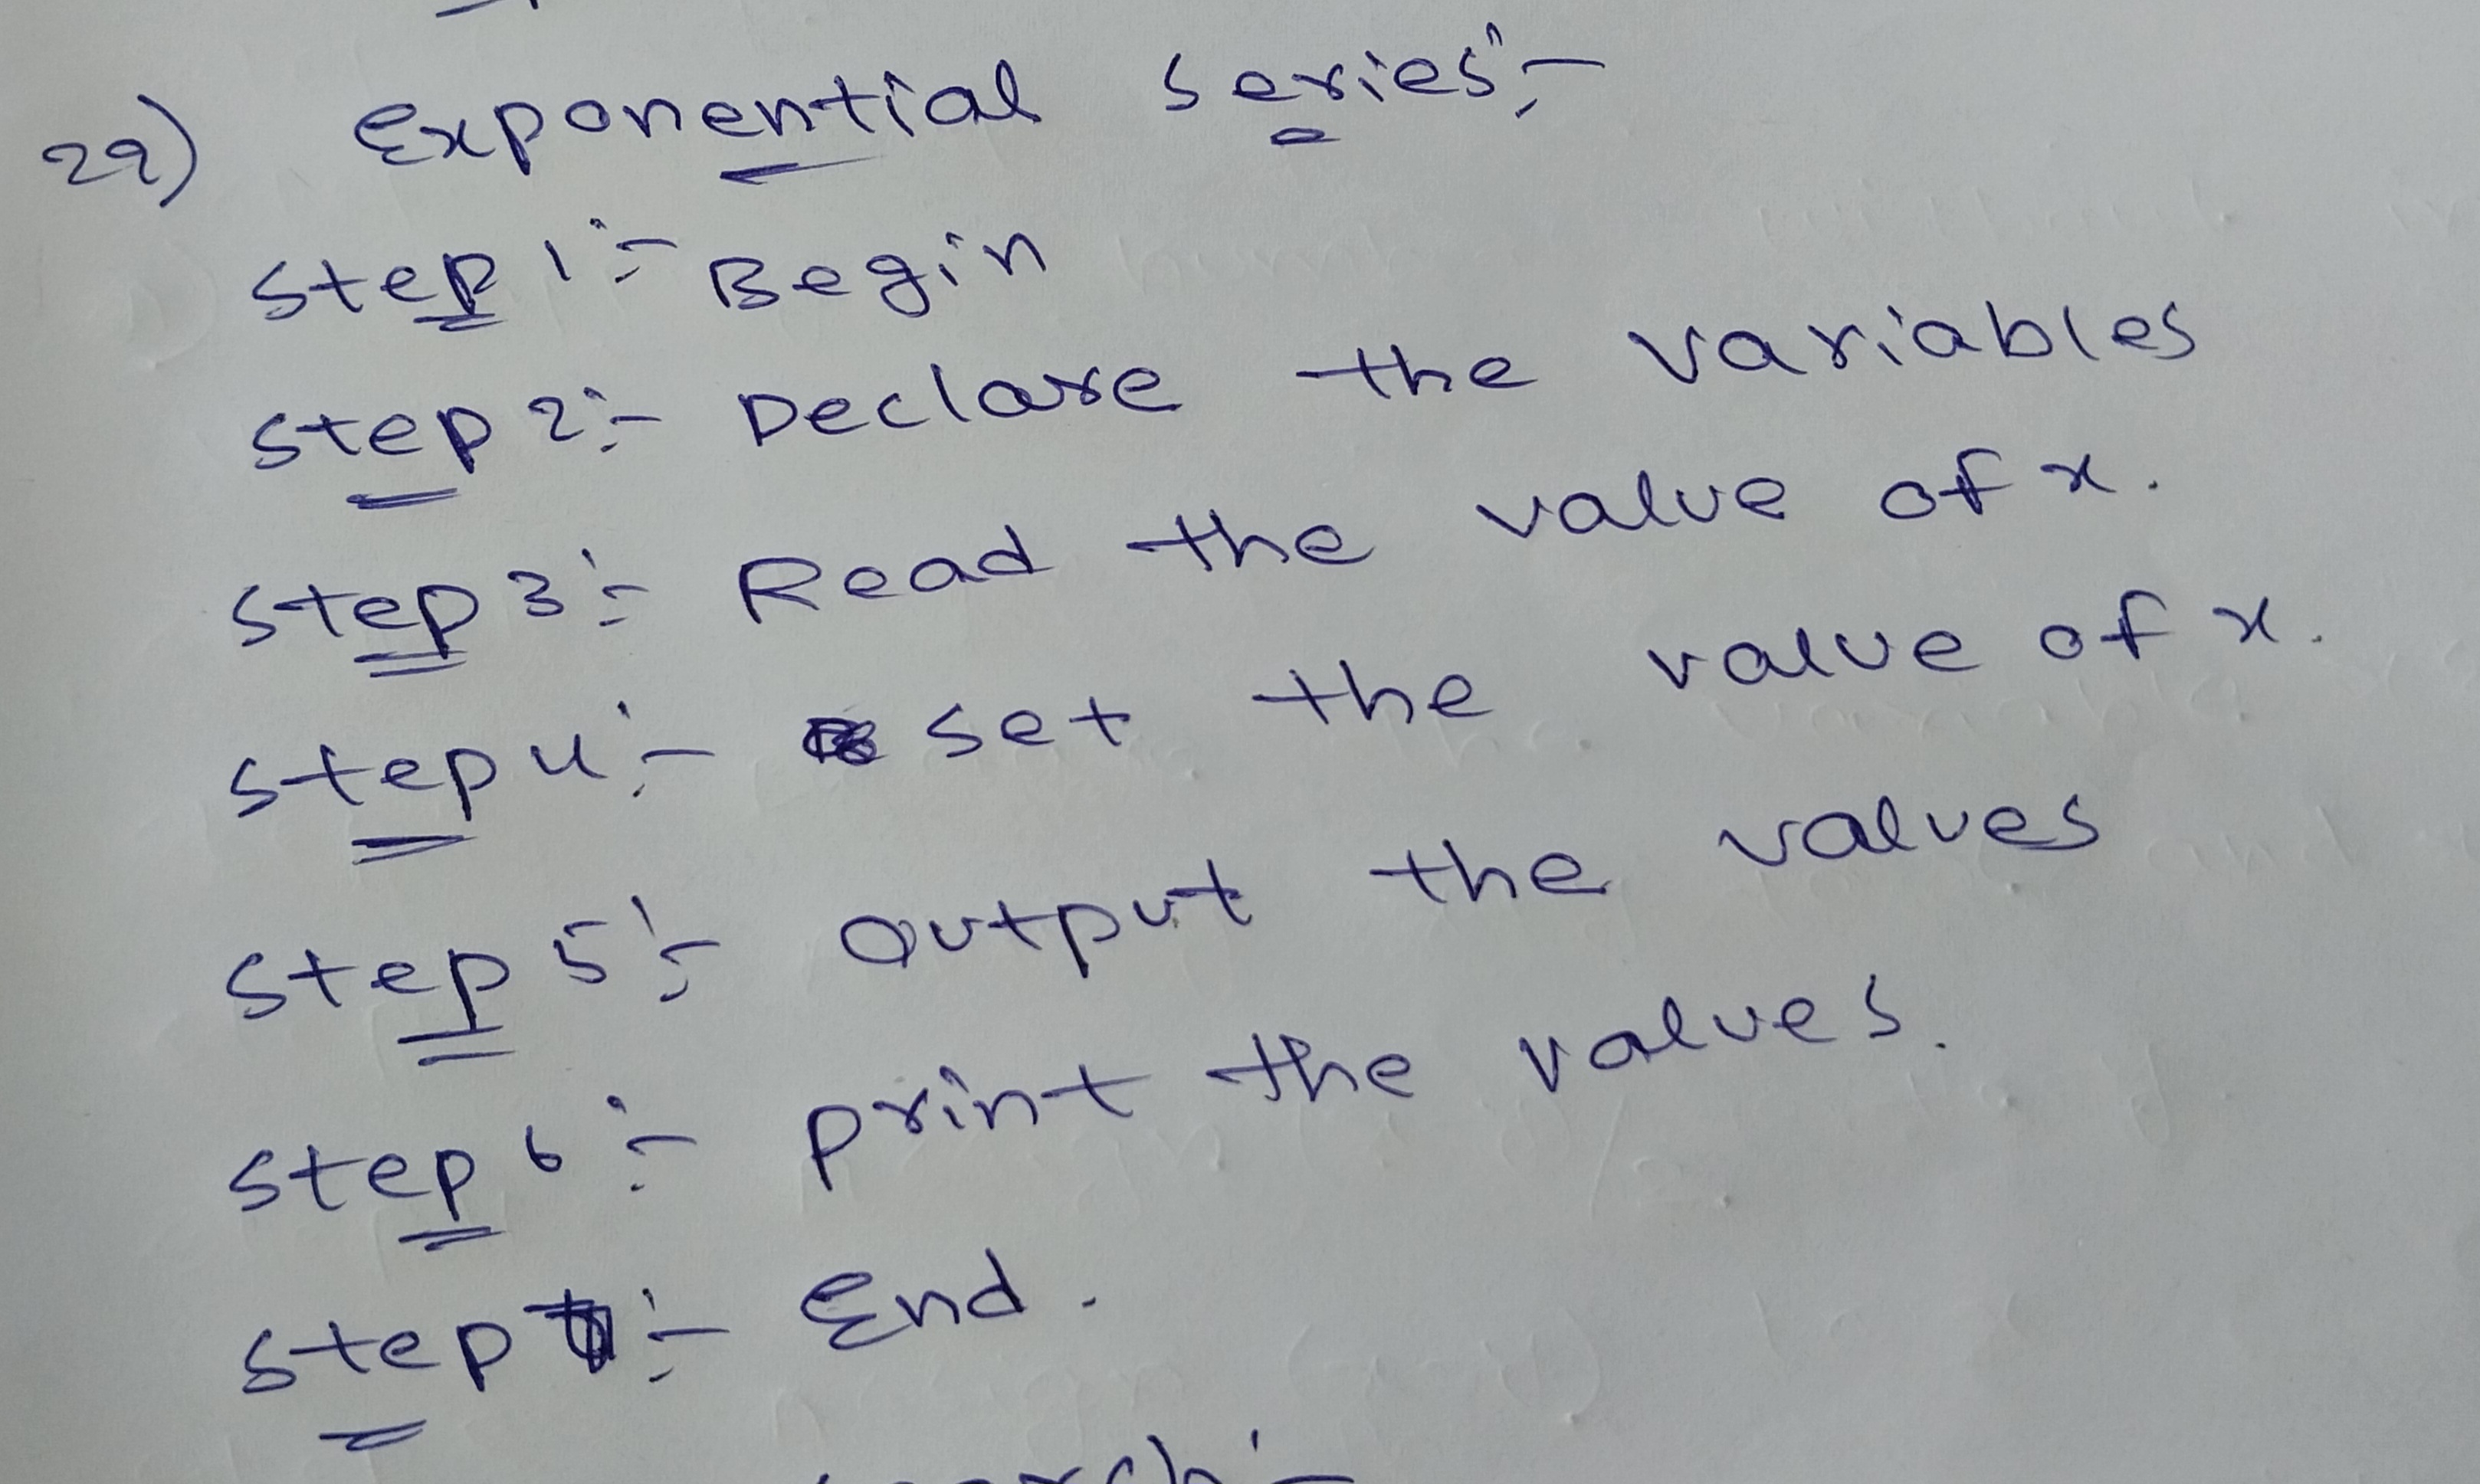 29) Exponential series:-
step 1:- Begin
step 2:- Declare the variables
step 3:- Read the value of x.
step 4:- set the value of x.
step 5:- Output the values
step 6:- print the values.
step 7:- End.